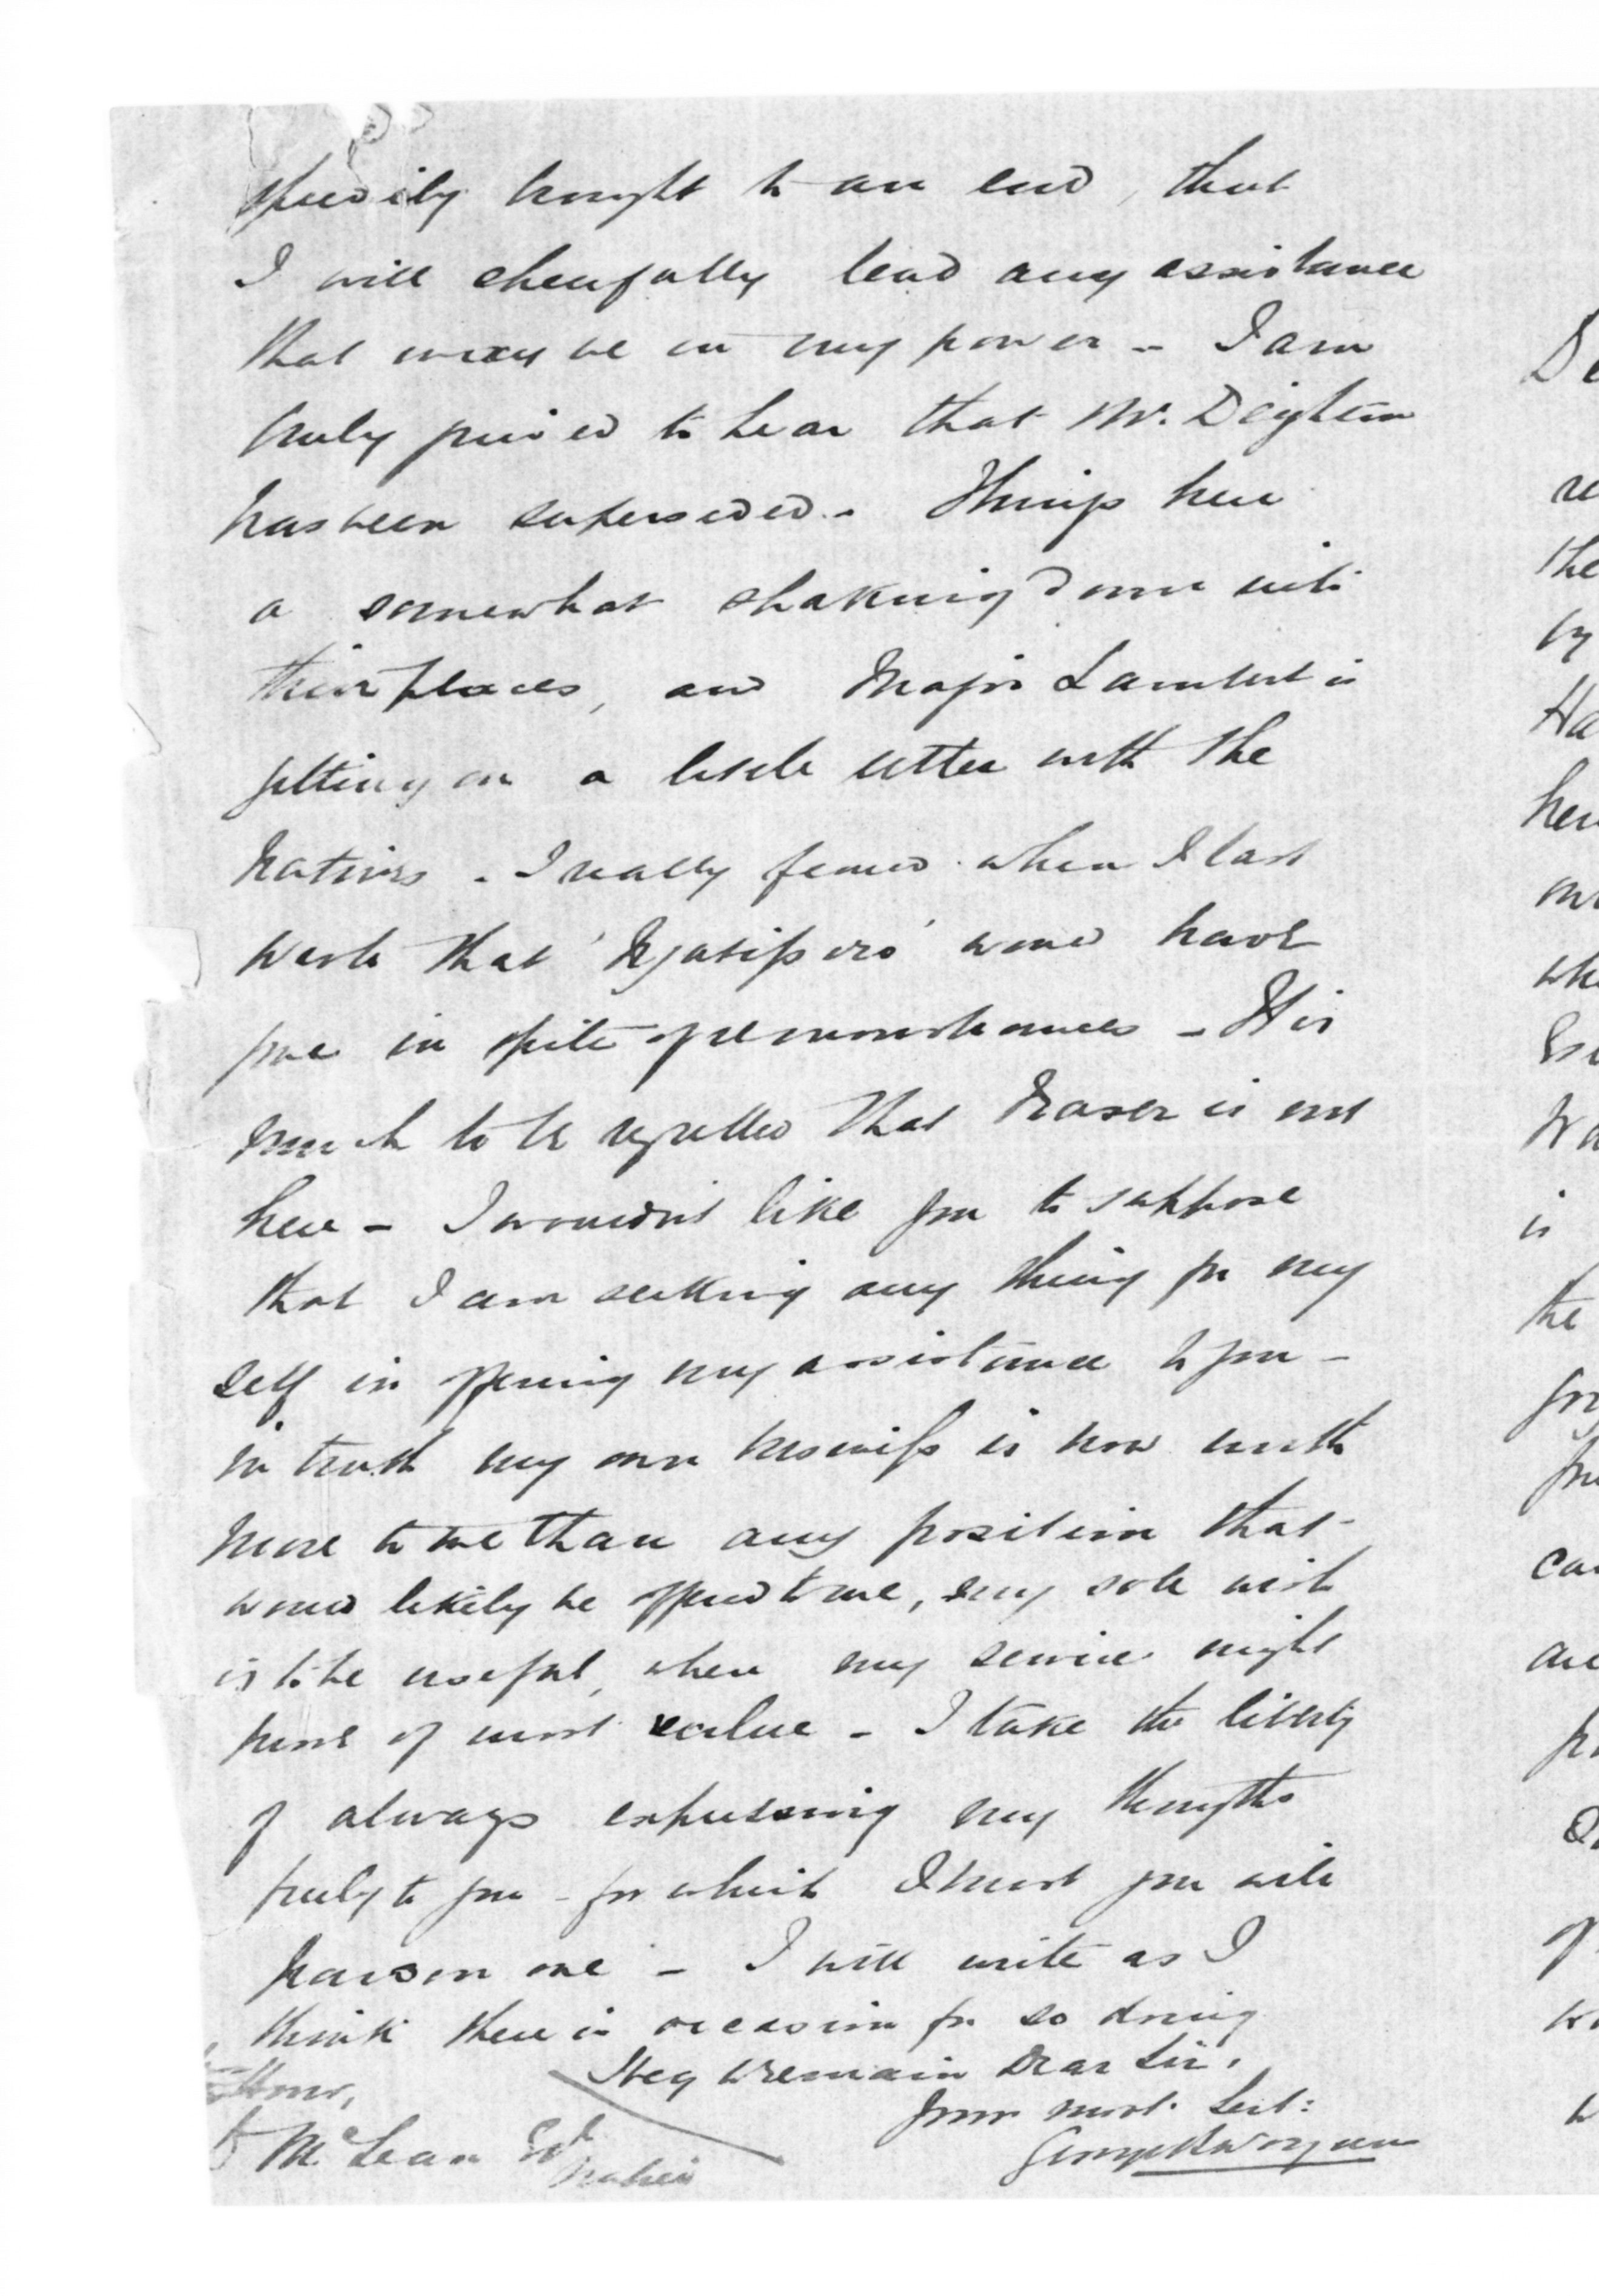 speedily brought to an end, that
I will cheerfully lend any assistance
that may be in my power - I am
truly grieved to hear that Mr. Deighton
has been superseded - Things here
a somewhat shaking down into
their places, and Major Lambert is
getting on a little better with the
Natives - I really feared when I last
wrote that 'Ngatiporo' would have
gone in spite of remonstrances - It is
much to be regretted that Fraser is not
here - I wouldn't like you to suppose
that I am seeking any thing for my
self in offering my assistance to you -
in truth my own business is now worth
more to me than any position that
would likely be offered to me, my sole wish
is to be useful, where my service might
prove of most value - I take the liberty
of always expressing my thoughts
freely to you - for which I trust you will
pardon me - I will write as I
think there is occasion for so doing
I beg to remain Dear Sir,
Your most. Servt:
George B Worgan
McLean Esq
Napier
De
re
the
by
Ha
her
wh
Wa
is
the
ca
are